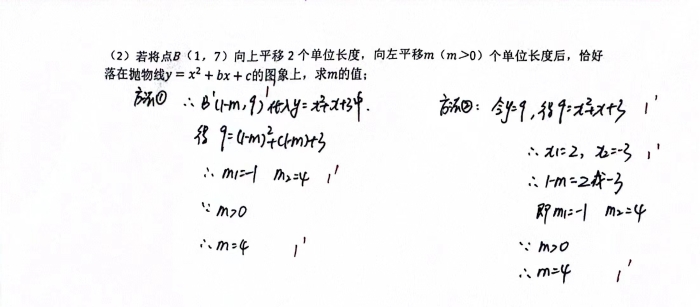 （2）若将点B（1，7）向上平移 2 个单位长度，向左平移m（m＞0）个单位长度后，恰好
落在抛物线y = x² + bx + c的图象上，求m的值；
方法① ∴ B'(1-m,9) 1' 代入y=x²+x+3中.
得 9=(1-m)²+(1-m)+3
∴ m₁=-1 m₂=4 1'
∵ m>0
∴ m=4 1'
方法②：令y=9，得9=x²+x+3 1'
∴ x₁=2，x₂=-3 1'
∴ 1-m=2或-3
即m₁=-1 m₂=4
∵ m>0
∴ m=4 1'